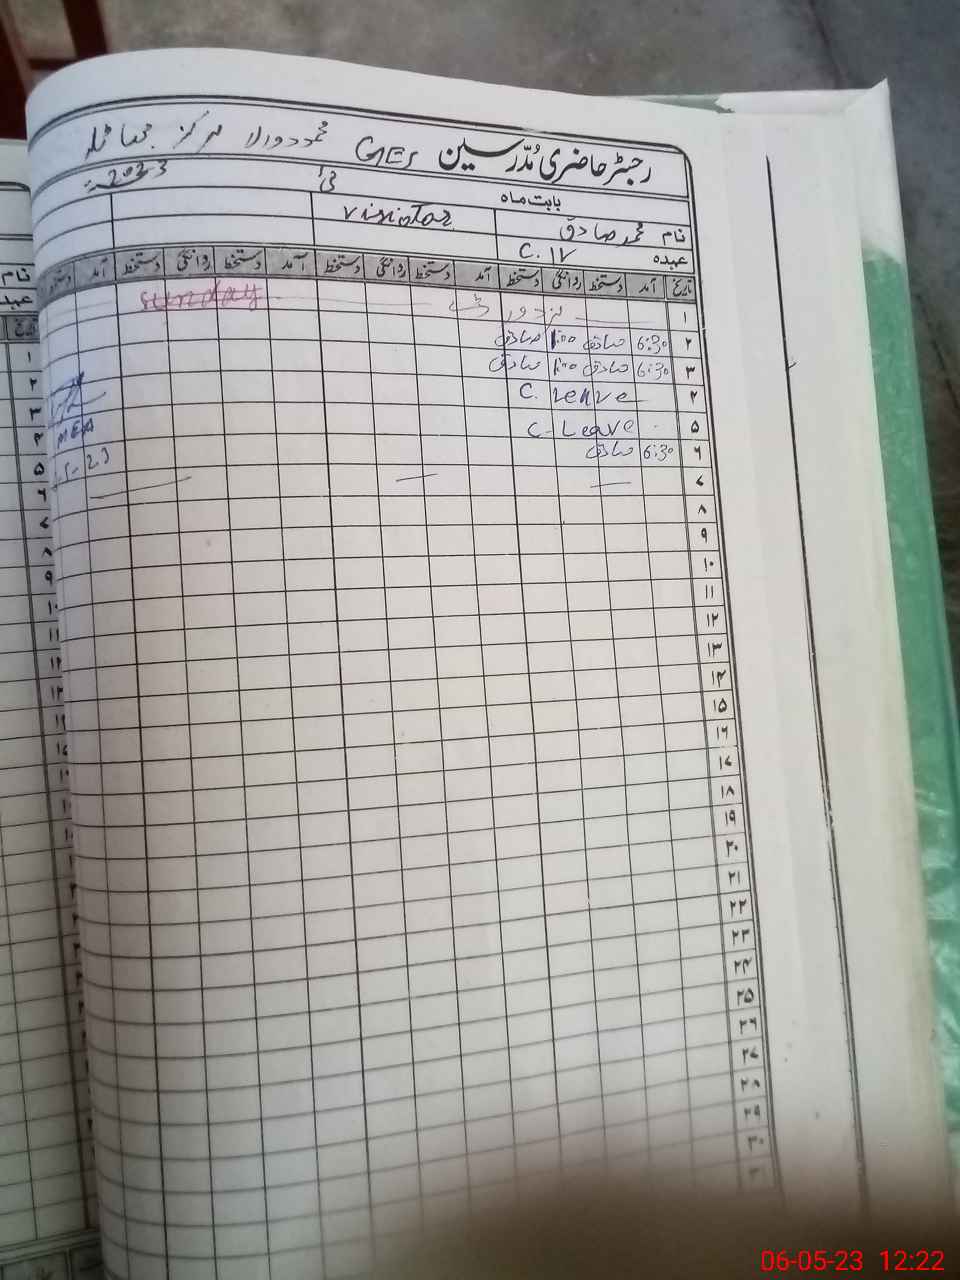 رجسٹر حاضری مُدّرسین GES محمود والا مرکز
بابت ماہ مئی 2023
نام محمد صادق
عہدہ C.IV
visiotor
تاریخ آمد دستخط روانگی دستخط آمد دستخط روانگی دستخط آمد دستخط روانگی دستخط آمد دستخط
۱ sunday
۲ 6:30 صادق 1:00 صادق
۳ 6:30 صادق 1:00 صادق
۴ C. leave
۵ C. Leave
۶ 6:30 صادق
۷
۸
۹
۱۰
۱۱
۱۲
۱۳
۱۴
۱۵
۱۶
۱۷
۱۸
۱۹
۲۰
۲۱
۲۲
۲۳
۲۴
۲۵
۲۶
۲۷
۲۸
۲۹
۳۰
MEA
نام
عہدہ
تاریخ
06-05-23 12:22